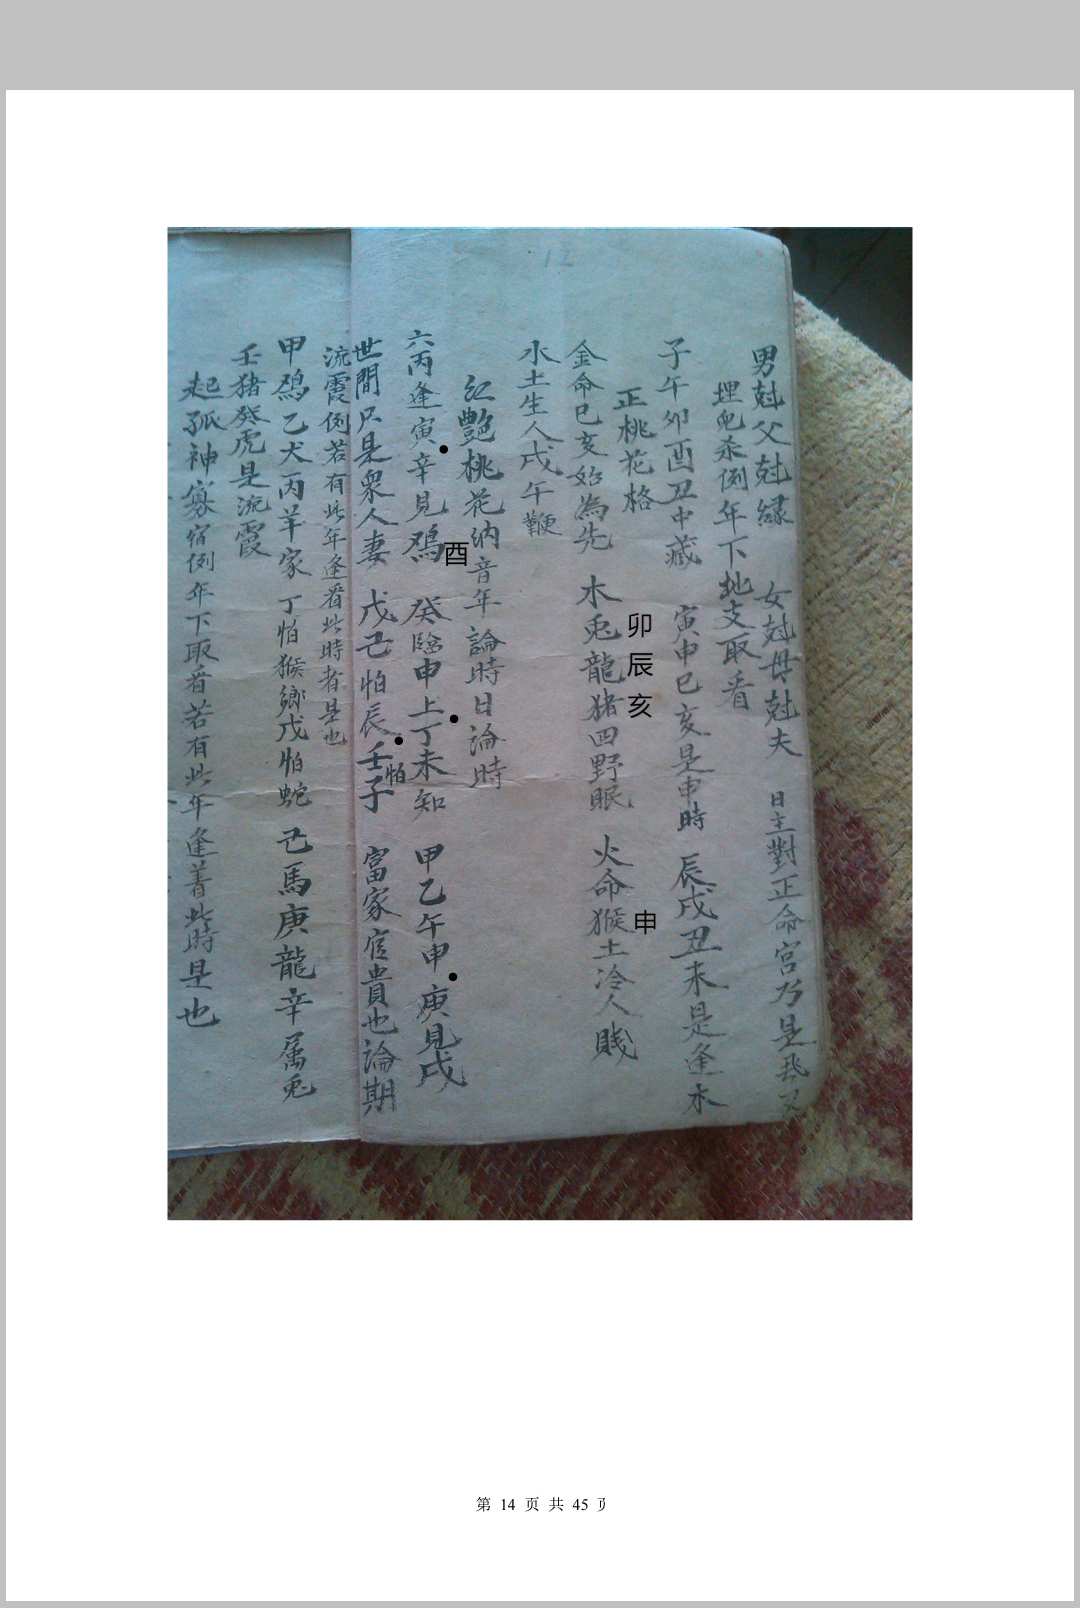 12
男尅父尅緣 女尅母尅夫 日主對正命宮乃是
埋兒杀例年下地支取看
子午卯酉丑中藏 寅申巳亥是申時 辰戌丑未是逢木
正桃花格
金命巳亥始為先 木兎龍猪四野眠 火命猴土冷人賎
卯辰亥
申
水土生人戌午鞭
紅艷桃花納音年論時日論時
六丙逢寅辛見鸡 癸臨申上丁未知 甲乙午申庚見戌
酉
世間只是衆人妻 戊己怕辰壬怕子 富家官貴也論期
流霞例若有此年逢看此時者是也
甲鸡乙犬丙羊家 丁怕猴鄉戊怕蛇 己馬庚龍辛属兎
壬猪癸虎是流霞
起孤神寡宿例年下取看若有此年逢著此時是也
第 14 页 共 45 页